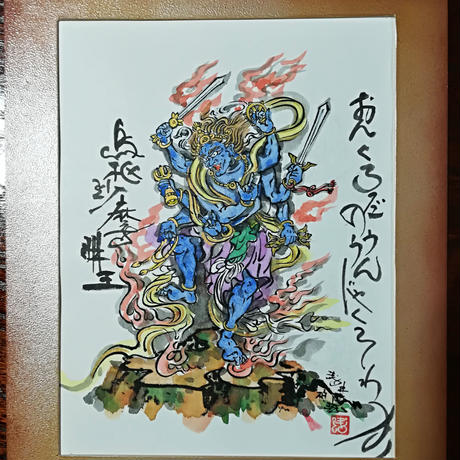 おんくろだのううんじゃくそわか
烏枢沙摩明王